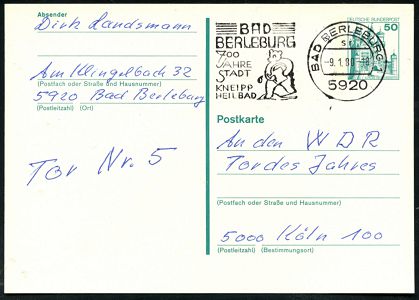 Absender
Dirk Landsmann
Am Klingelbach 32
(Postfach oder Straße und Hausnummer)
5920 Bad Berleburg
(Postleitzahl) (Ort)
Tor Nr. 5
BAD
BERLEBURG
700
JAHRE
STADT
KNEIPP
HEILBAD
BAD BERLEBURG 1
5920
DEUTSCHE BUNDESPOST
50
Postkarte
An den WDR
Tor des Jahres
(Postfach oder Straße und Hausnummer)
5000 Köln 100
(Postleitzahl) (Bestimmungsort)